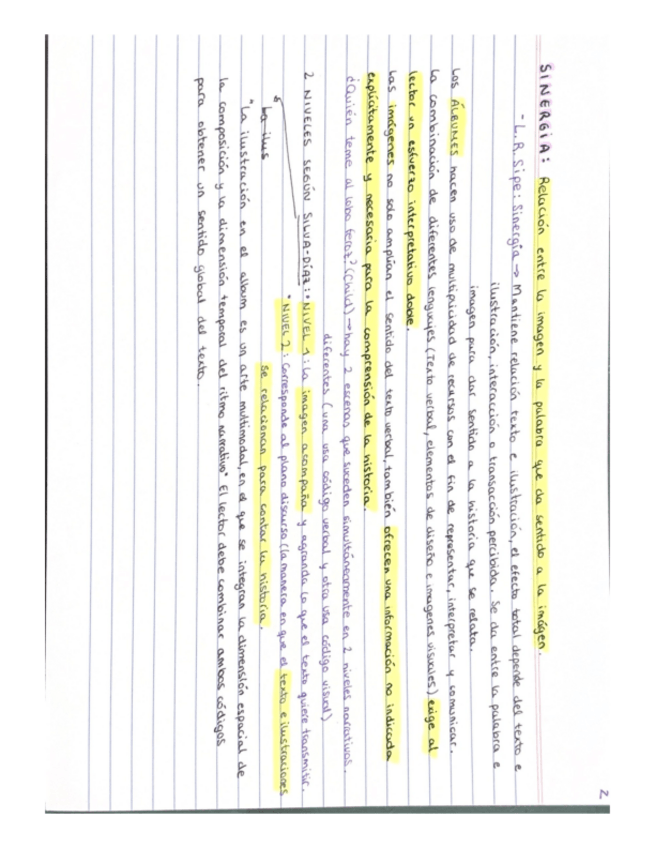 2
SINERGIA: Relación entre la imagen y la palabra que da sentido a la imágen.
- L.R Sipe: Sinergia → Mantiene relación texto e ilustración, el efecto total depende del texto e
ilustración, interacción o transacción percibida. Se da entre la palabra e
imagen para dar sentido a la historia que se relata.
Los ÁLBUMES hacen uso de multiplicidad de recursos con el fin de representar, interpretar y comunicar.
La combinación de diferentes lenguajes (Texto verbal, elementos de diseño e imagenes visuales) exige al
lector un esfuerzo interpretativo doble.
Las imágenes no solo amplían el sentido del texto verbal, también ofrecen una información no indicada
explícitamente y necesaria para la comprensión de la historia.
¿Quién teme al lobo feroz? (Child) → hay 2 escenas que suceden simultáneamente en 2 niveles narrativos.
diferentes (una usa código verbal y otra usa código visual)
2 NIVELES SEGÚN SILVA-DÍAZ: • NIVEL 1: La imagen acompaña y agranda lo que el texto quiere transmitir.
• NIVEL 2: Corresponde al plano discurso (la manera en que el texto e ilustraciones
se relacionan para contar la historia.
La ilus
"La ilustración en el album es un arte multimodal, en el que se integran la dimensión espacial de
la composición y la dimensión temporal del ritmo narrativo" El lector debe combinar ambos códigos
para obtener un sentido global del texto.